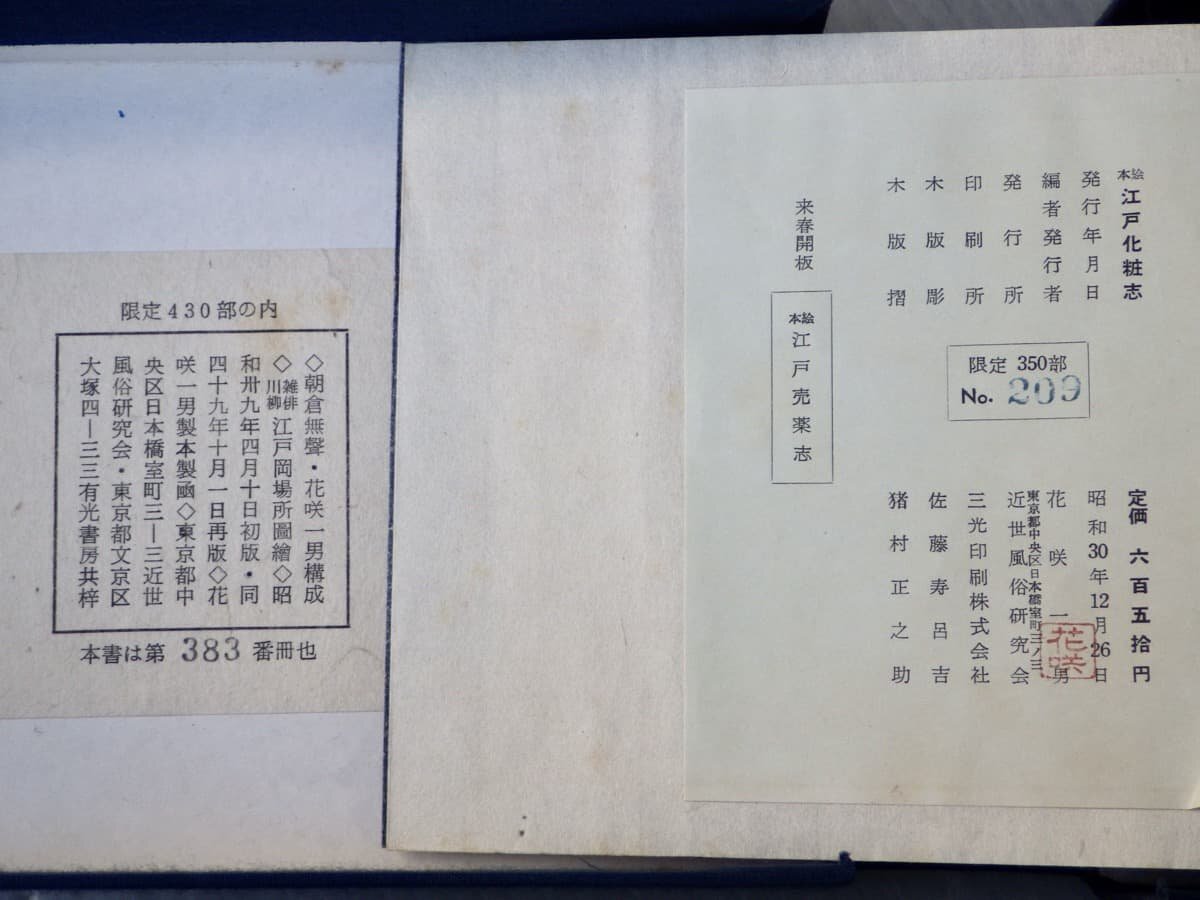 絵本 江戸化粧志 定価 六百五拾円
発行年月日 昭和30年12月26日
編者発行者 花咲一男
花咲
東京都中央区日本橋室町三ノ三
発行所 近世風俗研究会
印刷所 三光印刷株式会社
木版彫 佐藤寿呂吉
木版摺 猪村正之助
限定 350部
No. 209
来春開板 絵本 江戸売薬志
限定430部の内
◇朝倉無聲・花咲一男構成
◇雑俳川柳江戸岡場所圖繪◇昭
和卅九年四月十日初版・同
四十九年十月一日再版◇花
咲一男製本製凾◇東京都中
央区日本橋室町三―三近世
風俗研究会・東京都文京区
大塚四―三三有光書房共梓
本書は第 383 番冊也